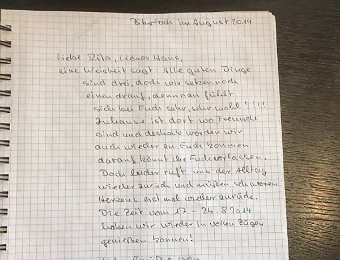 im August 2014
Liebe Rita, lieber Hans,
eine Weisheit sagt, Alle guten Dinge
sind drei, doch wir setzen noch
einen drauf, denn man fühlt
sich bei Euch sehr, sehr wohl !!!!
Zuhause ist dort wo Freunde
sind und deshalb werden wir
auch wieder zu Euch kommen
darauf könnt ihr Euch verlassen.
Doch leider ruft uns der Alltag
wieder zurück und müssen schweren
Herzens erstmal wieder zurück.
Die Zeit vom 17. - 24.8.2014
haben wir wieder in vollen Zügen
genießen können!